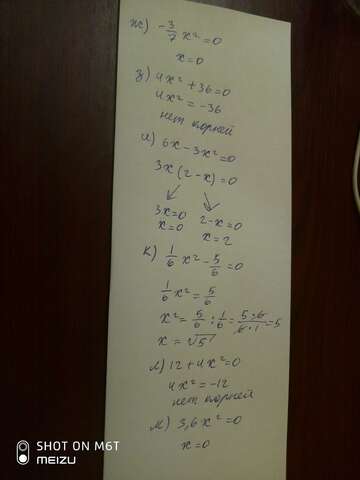 ж) -3/7 x² = 0
x = 0
з) 4x² + 36 = 0
4x² = -36
нет корней
и) 6x - 3x² = 0
3x(2 - x) = 0
3x = 0 2 - x = 0
x = 0 x = 2
к) 1/6 x² - 5/6 = 0
1/6 x² = 5/6
x² = 5/6 : 1/6 = 5·6/6·1 = 5
x = √5
л) 12 + 4x² = 0
4x² = -12
нет корней
м) 3,6x² = 0
x = 0
SHOT ON M6T
MEIZU